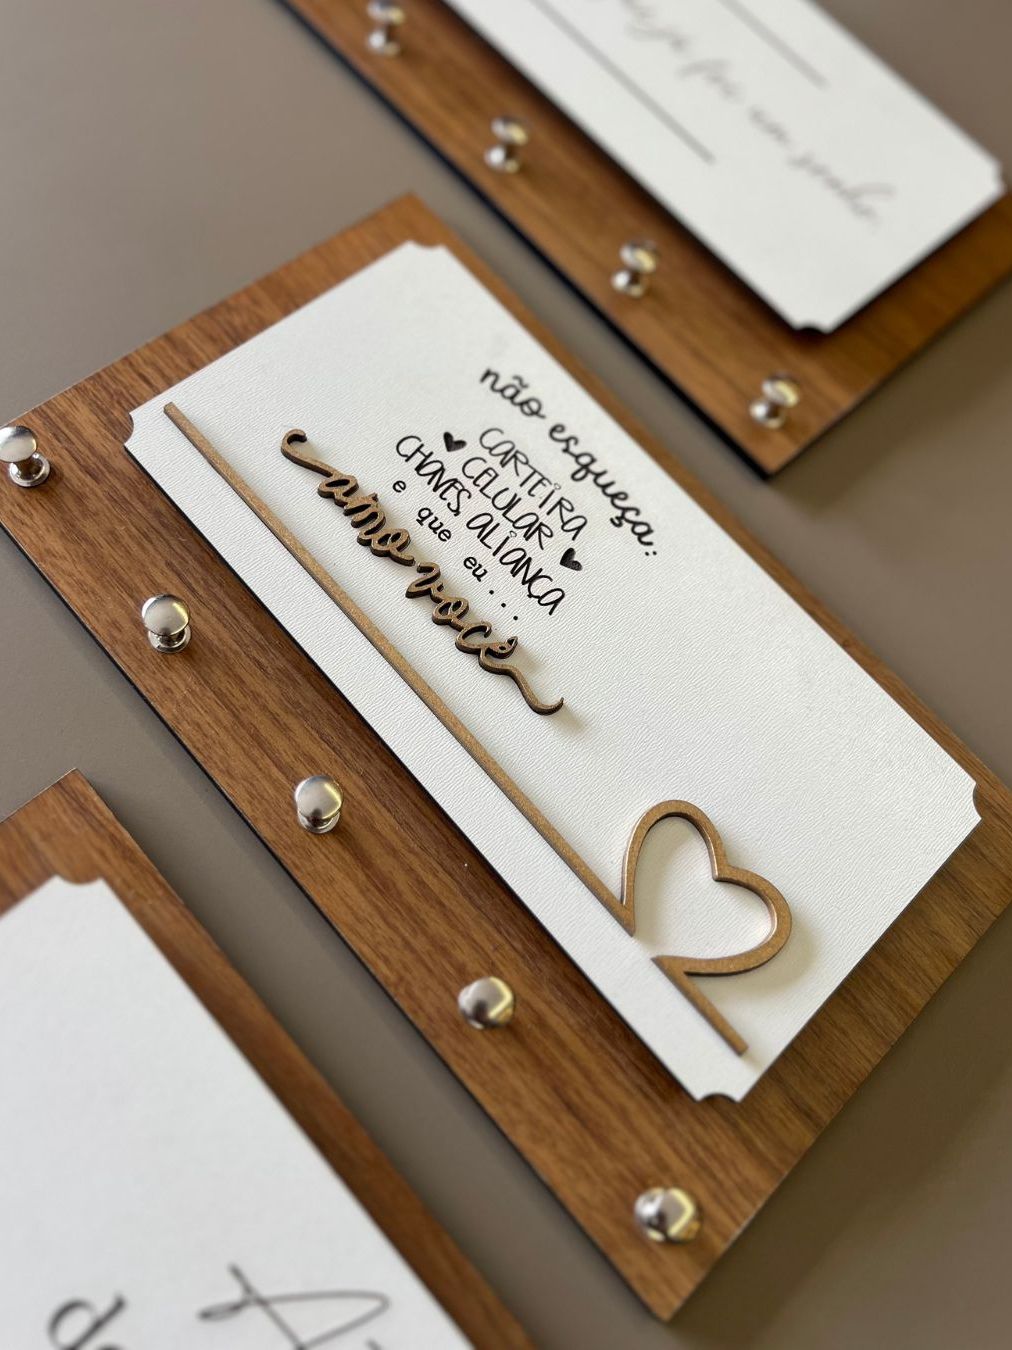 não esqueça:
CARTEIRA
CELULAR
CHAVES, ALIANÇA
e que eu...
amo você
foi um sonho.